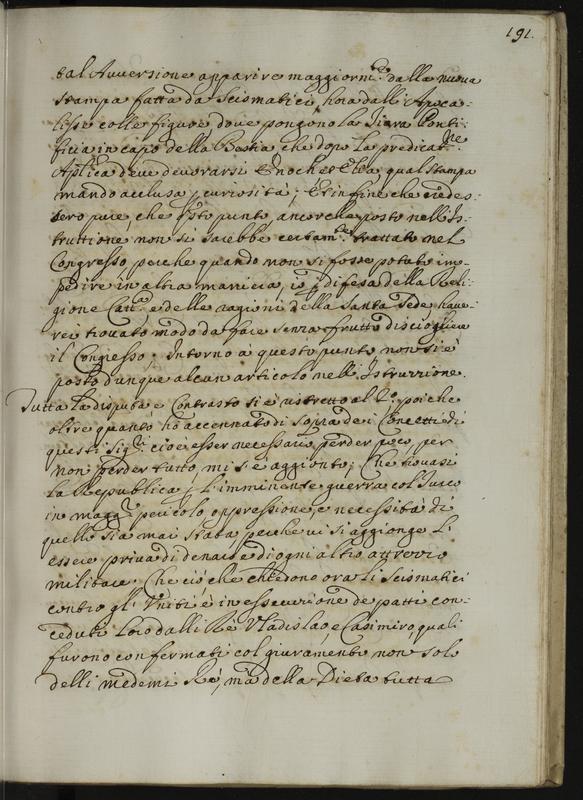 191.
tal Avversione apparire maggiorm.te dalla nuova
stampa fatta da Scismatici, hora dall'Apoca-
lissi colle figure, dove pongono la Tiara Ponti-
ficia in capo della Bestia che dopo la predicat.ne
Aplica deve devorarsi Enoch et Elia, qual stampa
mando acclusa, curiosità; Et infine che credes-
sero pure, che q.sto punto, ancorche posto nell'Is-
truttione, non si sarebbe certam.te trattato nel
Congresso perche quando non si fosse potuto im-
pedire in altra maniera, io p difesa della Reli-
gione Catt.ca e delle ragioni della Santa Sede have-
rei trovato modo da fare senza frutto disciogliere
il Congresso; Intorno à questo punto non si è
posto dunque alcun articolo nell'Istruzzione.
Tutta la disputa e Contrasto si è ristretto al 2.o, poi che
oltre quanto hò accennato di sopra dei Concetti di
questi Sig.ri cioè esser necessario perder poco, per
non perder tutto, mi s'è aggionto; Che trovasi
la Republica p l'imminente guerra col Turco
in magg.r pericolo, oppressione, e necessità di
quello sia mai stata, perche vi si aggionge l'
essere priva di denaro e di ogni altro attrezzo
militare. Che ciò che chiedono ora li Scismatici
contro gl'Uniti è in essecuzione de patti con-
ceduti loro dalli Rè Vladislao, e Casimiro, quali
furono confermati col giuramento non solo
delli medemi Rè, mà della Dieta tutta